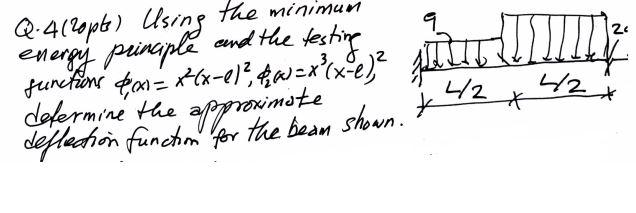 Q.4(20pts) Using the minimum
energy principle and the testing
functions ϕ₁(x) = x²(x-ℓ)², ϕ₂(x) = x³(x-ℓ)²,
determine the approximate
deflection function for the beam shown.
q
L/2
L/2